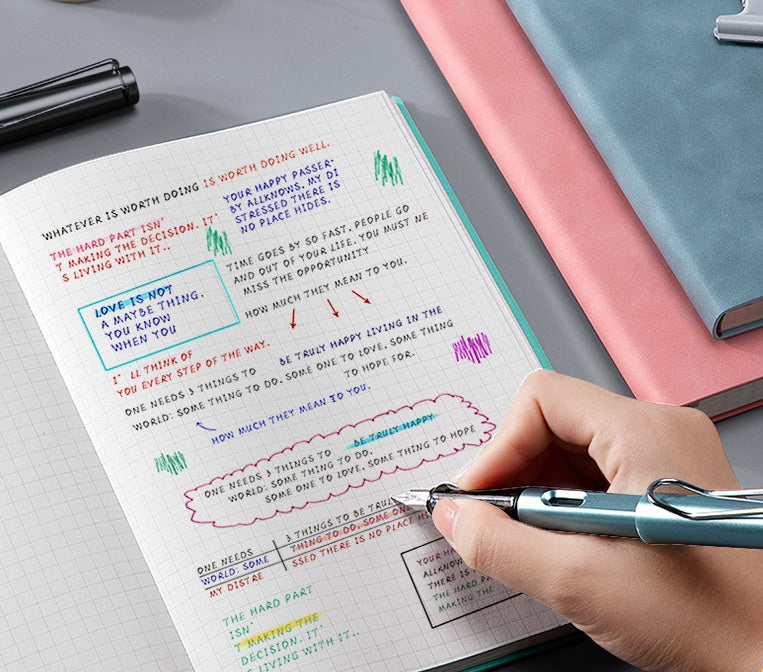 WHATEVER IS WORTH DOING IS WORTH DOING WELL.
THE HARD PART ISN'
T MAKING THE DECISION. IT'
S LIVING WITH IT..
YOUR HAPPY PASSER-
BY ALLKNOWS, MY DI
STRESSED THERE IS
NO PLACE HIDES.
TIME GOES BY SO FAST, PEOPLE GO
AND OUT OF YOUR LIFE. YOU MUST NE
MISS THE OPPORTUNITY
HOW MUCH THEY MEAN TO YOU.
LOVE IS NOT
A MAYBE THING.
YOU KNOW
WHEN YOU
I' LL THINK OF
YOU EVERY STEP OF THE WAY.
BE TRULY HAPPY LIVING IN THE
ONE NEEDS 3 THINGS TO
WORLD: SOME THING TO DO, SOME ONE TO LOVE, SOME THING
TO HOPE FOR.
HOW MUCH THEY MEAN TO YOU.
ONE NEEDS 3 THINGS TO BE TRULY HAPPY
WORLD: SOME THING TO DO,
SOME ONE TO LOVE, SOME THING TO HOPE
ONE NEEDS 3 THINGS TO BE TRULY
WORLD: SOME THING TO DO, SOME ONE
MY DISTRE SSED THERE IS NO PLACE H
YOUR H
ALLKNOW
THERE IS
THE HARD PA
MAKING THE
THE HARD PART
ISN'
T MAKING THE
DECISION. IT'
S LIVING WITH IT..